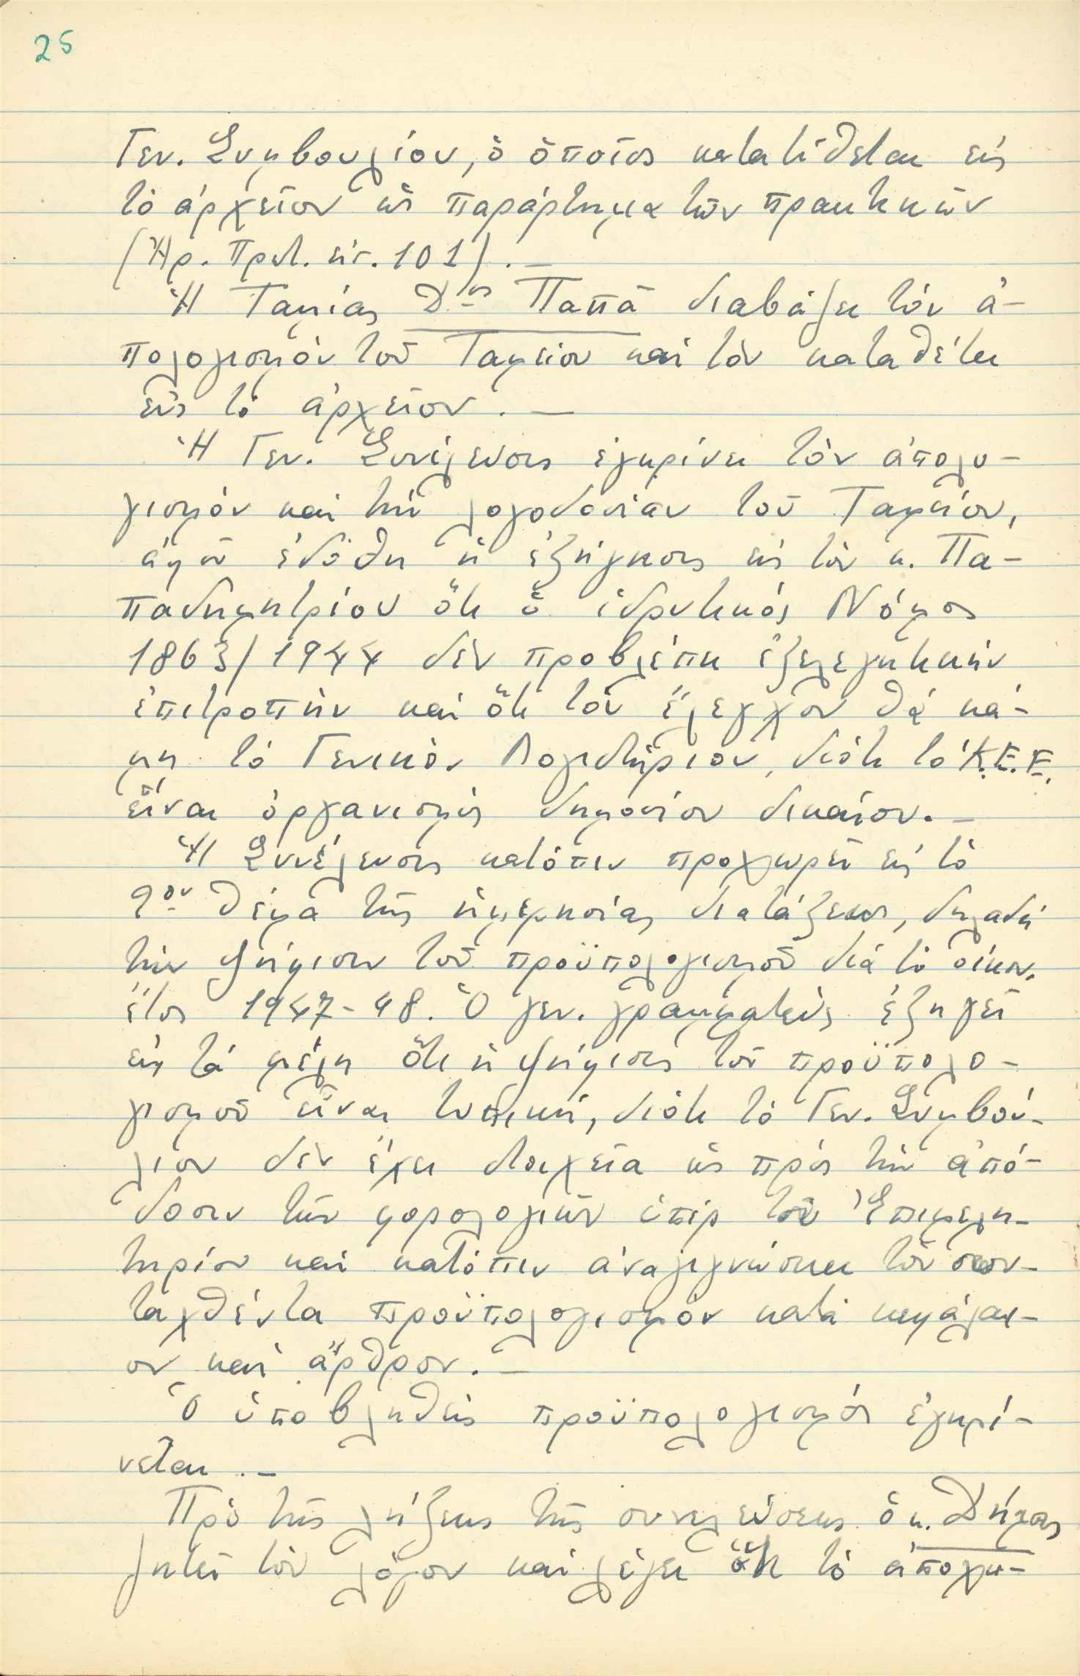 25
Γεν. Συμβουλίου, ὁ ὁποῖος κατατίθεται εἰς
τὸ ἀρχεῖον ὡς παράρτημα τῶν πρακτικῶν
(Ἀρ. Πρωτ. εἰσ. 101). —
Ἡ Ταμίας Δνὶς Παπᾶ διαβάζει τὸν ἀ-
πολογισμὸν τοῦ Ταμείου καὶ τὸν καταθέτει
εἰς τὸ ἀρχεῖον. —
Ἡ Γεν. Συνέλευσις ἐγκρίνει τὸν ἀπολο-
γισμὸν καὶ τὴν λογοδοσίαν τοῦ Ταμείου,
ἀφοῦ ἐδόθη ἡ ἐξήγησις εἰς τὸν κ. Πα-
παδημητρίου ὅτι ὁ ἱδρυτικὸς Νόμος
1863/1944 δὲν προβλέπει ἐξελεγκτικὴν
ἐπιτροπὴν καὶ ὅτι τὸν ἔλεγχον θὰ κά-
μῃ τὸ Γενικὸν Λογιστήριον, διότι τὸ Κ.Ε.Ε.
εἶναι ὀργανισμὸς δημοσίου δικαίου. —
Ἡ Συνέλευσις κατόπιν προχωρεῖ εἰς τὸ
9ον θέμα τῆς ἡμερησίας διατάξεως, δηλαδὴ
τὴν ψήφισιν τοῦ προϋπολογισμοῦ διὰ τὸ οἰκον.
ἔτος 1947-48. Ὁ γεν. γραμματεὺς ἐξηγεῖ
εἰς τὰ μέλη ὅτι ἡ ψήφισις τοῦ προϋπολο-
γισμοῦ εἶναι τυπική, διότι τὸ Γεν. Συμβού-
λιον δὲν ἔχει στοιχεῖα ὡς πρὸς τὴν ἀπό-
δοσιν τῶν φορολογιῶν ὑπὲρ τοῦ Ἐπιμελη-
τηρίου καὶ κατόπιν ἀναγιγνώσκει τὸν συν-
ταχθέντα προϋπολογισμὸν κατὰ κεφάλαι-
ον καὶ ἄρθρον. —
Ὁ ὑποβληθεὶς προϋπολογισμὸς ἐγκρί-
νεται. —
Πρὸ τῆς λήξεως τῆς συνελεύσεως ὁ κ. Δήμας
ζητεῖ τὸν λόγον καὶ λέγει ὅτι τὸ ἀπολυ-